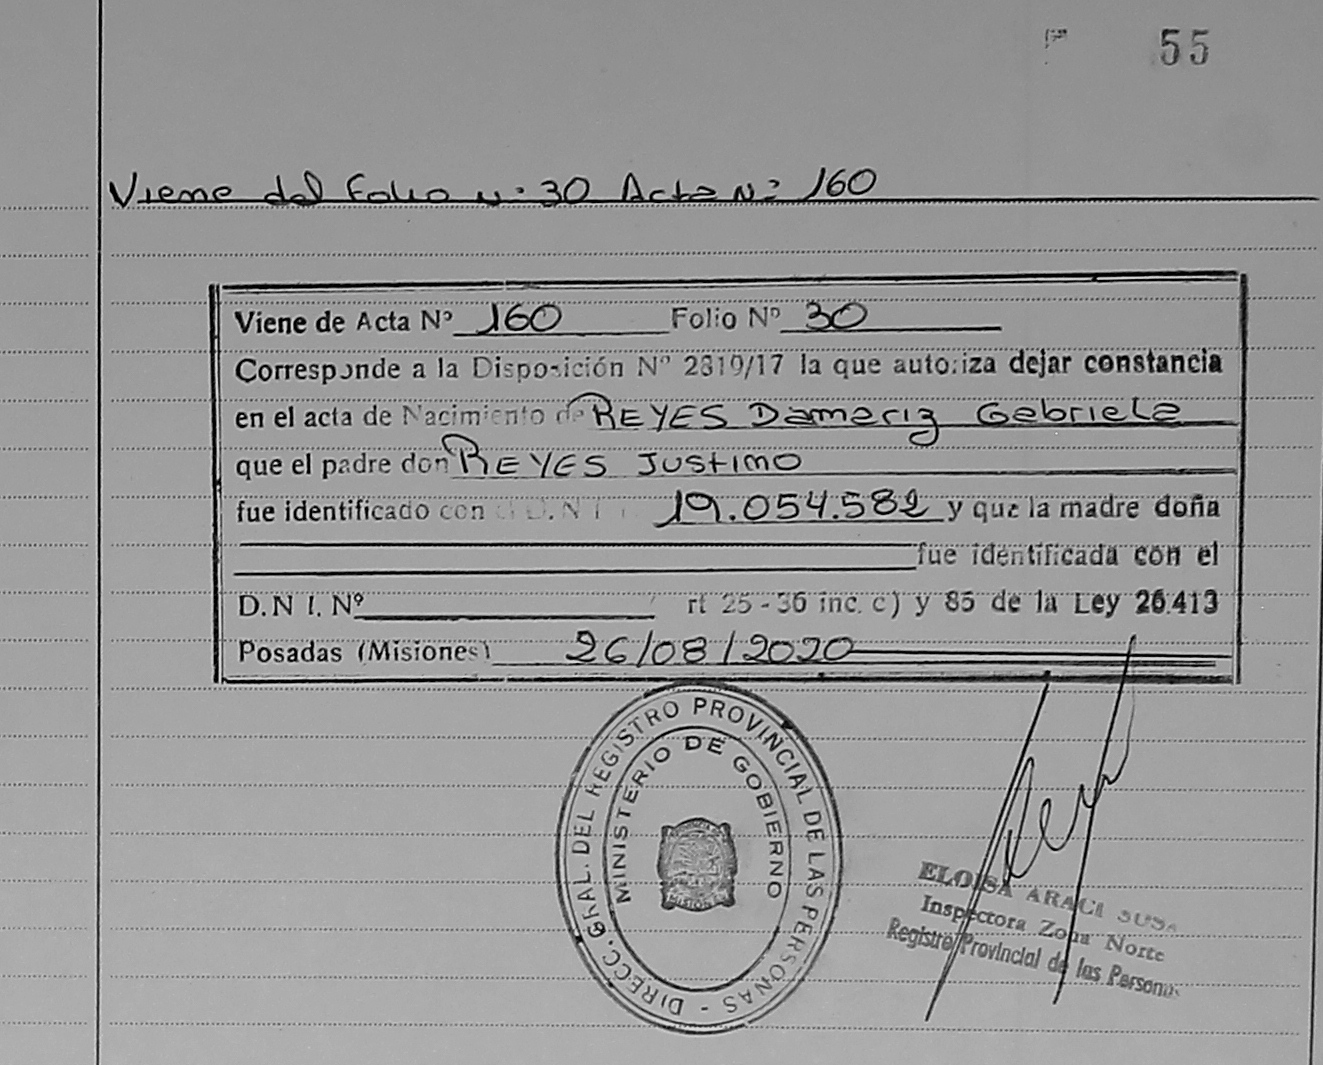 55
Viene del Folio N: 30 Acta N: 160
Viene de Acta Nº 160 Folio Nº 30
Corresponde a la Disposición Nº 2819/17 la que autoriza dejar constancia
en el acta de Nacimiento de REYES Dameriz Gabriela
que el padre don REYES Justino
fue identificado con el D.N.I. 19.054.582 y que la madre doña
fue identificada con el
D.N I. Nº rt 25-36 inc. c) y 85 de la Ley 26.413
Posadas (Misiones) 26/08/2020
DIRECC. GRAL. DEL REGISTRO PROVINCIAL DE LAS PERSONAS -
MINISTERIO DE GOBIERNO
ELOISA ARACI
Inspectora Zona Norte
Registro Provincial de las Personas